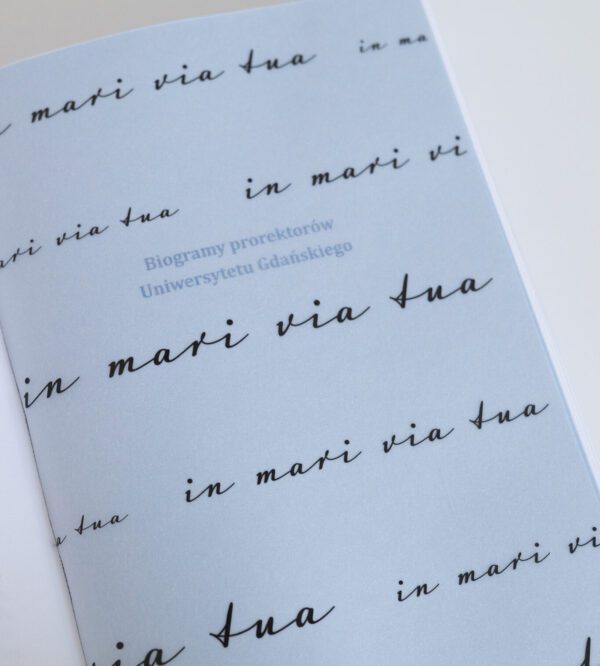 mari via tua
in ma
ri via tua
in mari vi
Biogramy prorektorów
Uniwersytetu Gdańskiego
in mari via tua
in mari via tua
a tua
in mari vi
via tua